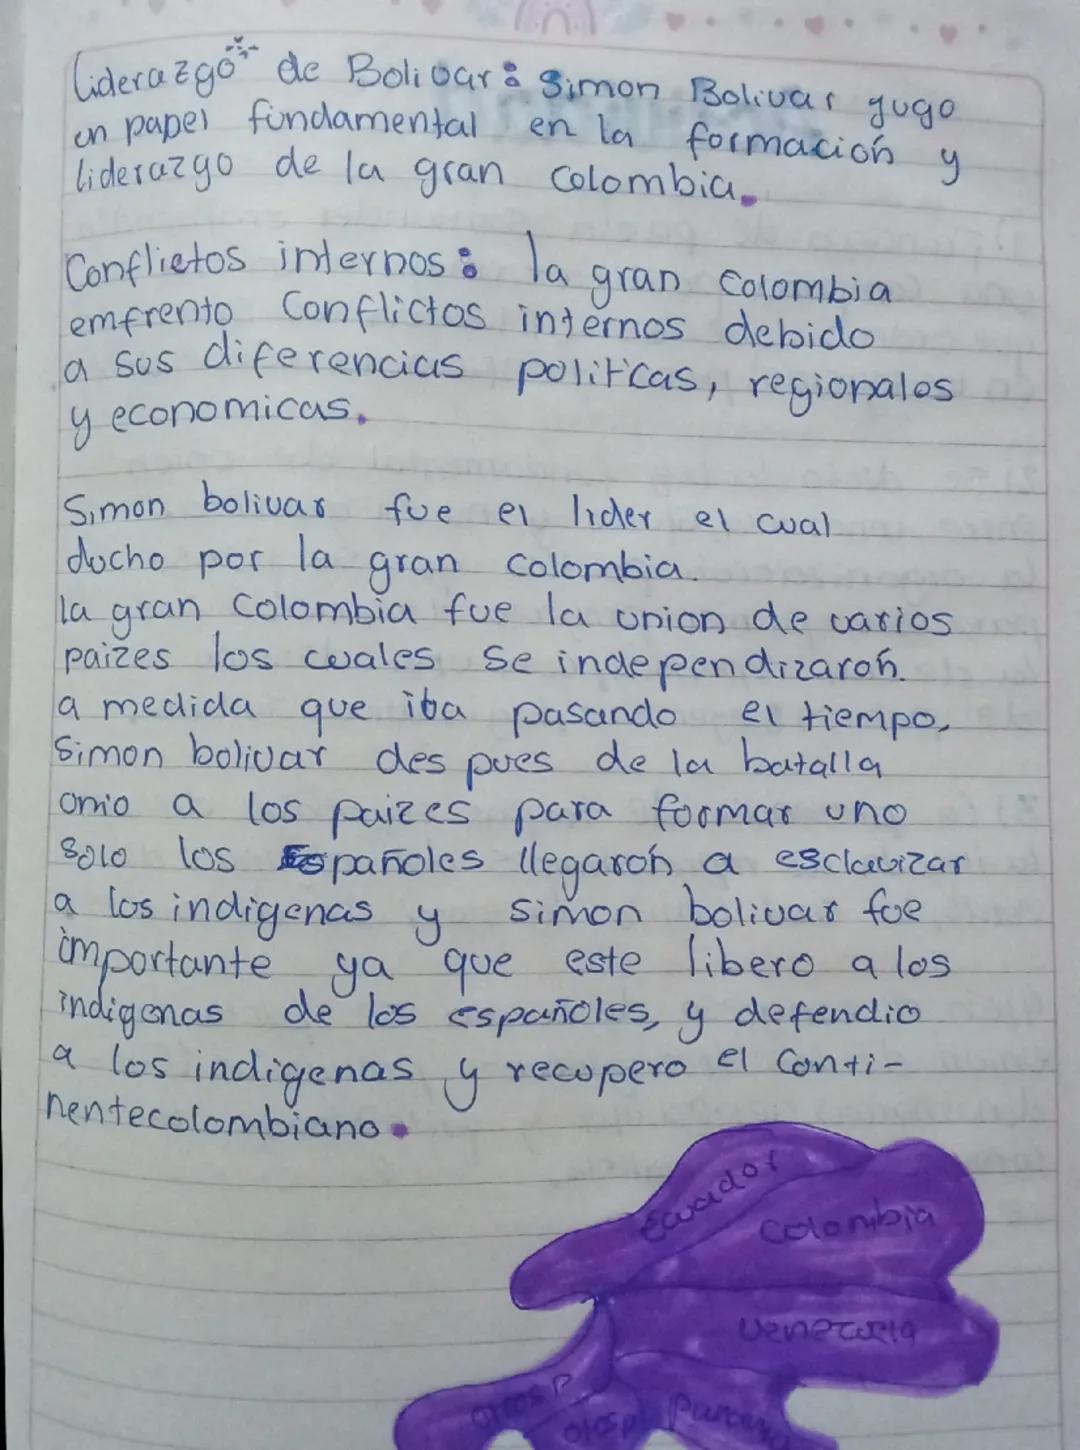 liderazgo de Bolivar: Simon Bolivar gugo
un papel fundamental en la formación y
liderazgo de la gran Colombia.
Conflictos internos: la gran Colombia
emfrento Conflictos internos debido
a sus diferencias politicas, regionales
y economicas.
Simon bolivar fue el lider el cual
ducho por la gran Colombia.
la gran Colombia fue la union de varios
paizes los cuales se independizarón.
a medida que iba pasando el tiempo,
Simon bolivar des pues de la batalla
onio a los paizes para formar uno
solo los Españoles llegarón a esclavizar
a los indigenas y simon bolivar foe
importante ya que este libero a los
indigenas de los españoles, y defendio
a los indigenas y recupero el Conti-
nentecolombiano.
Ecuador
Colombia
Venezuela